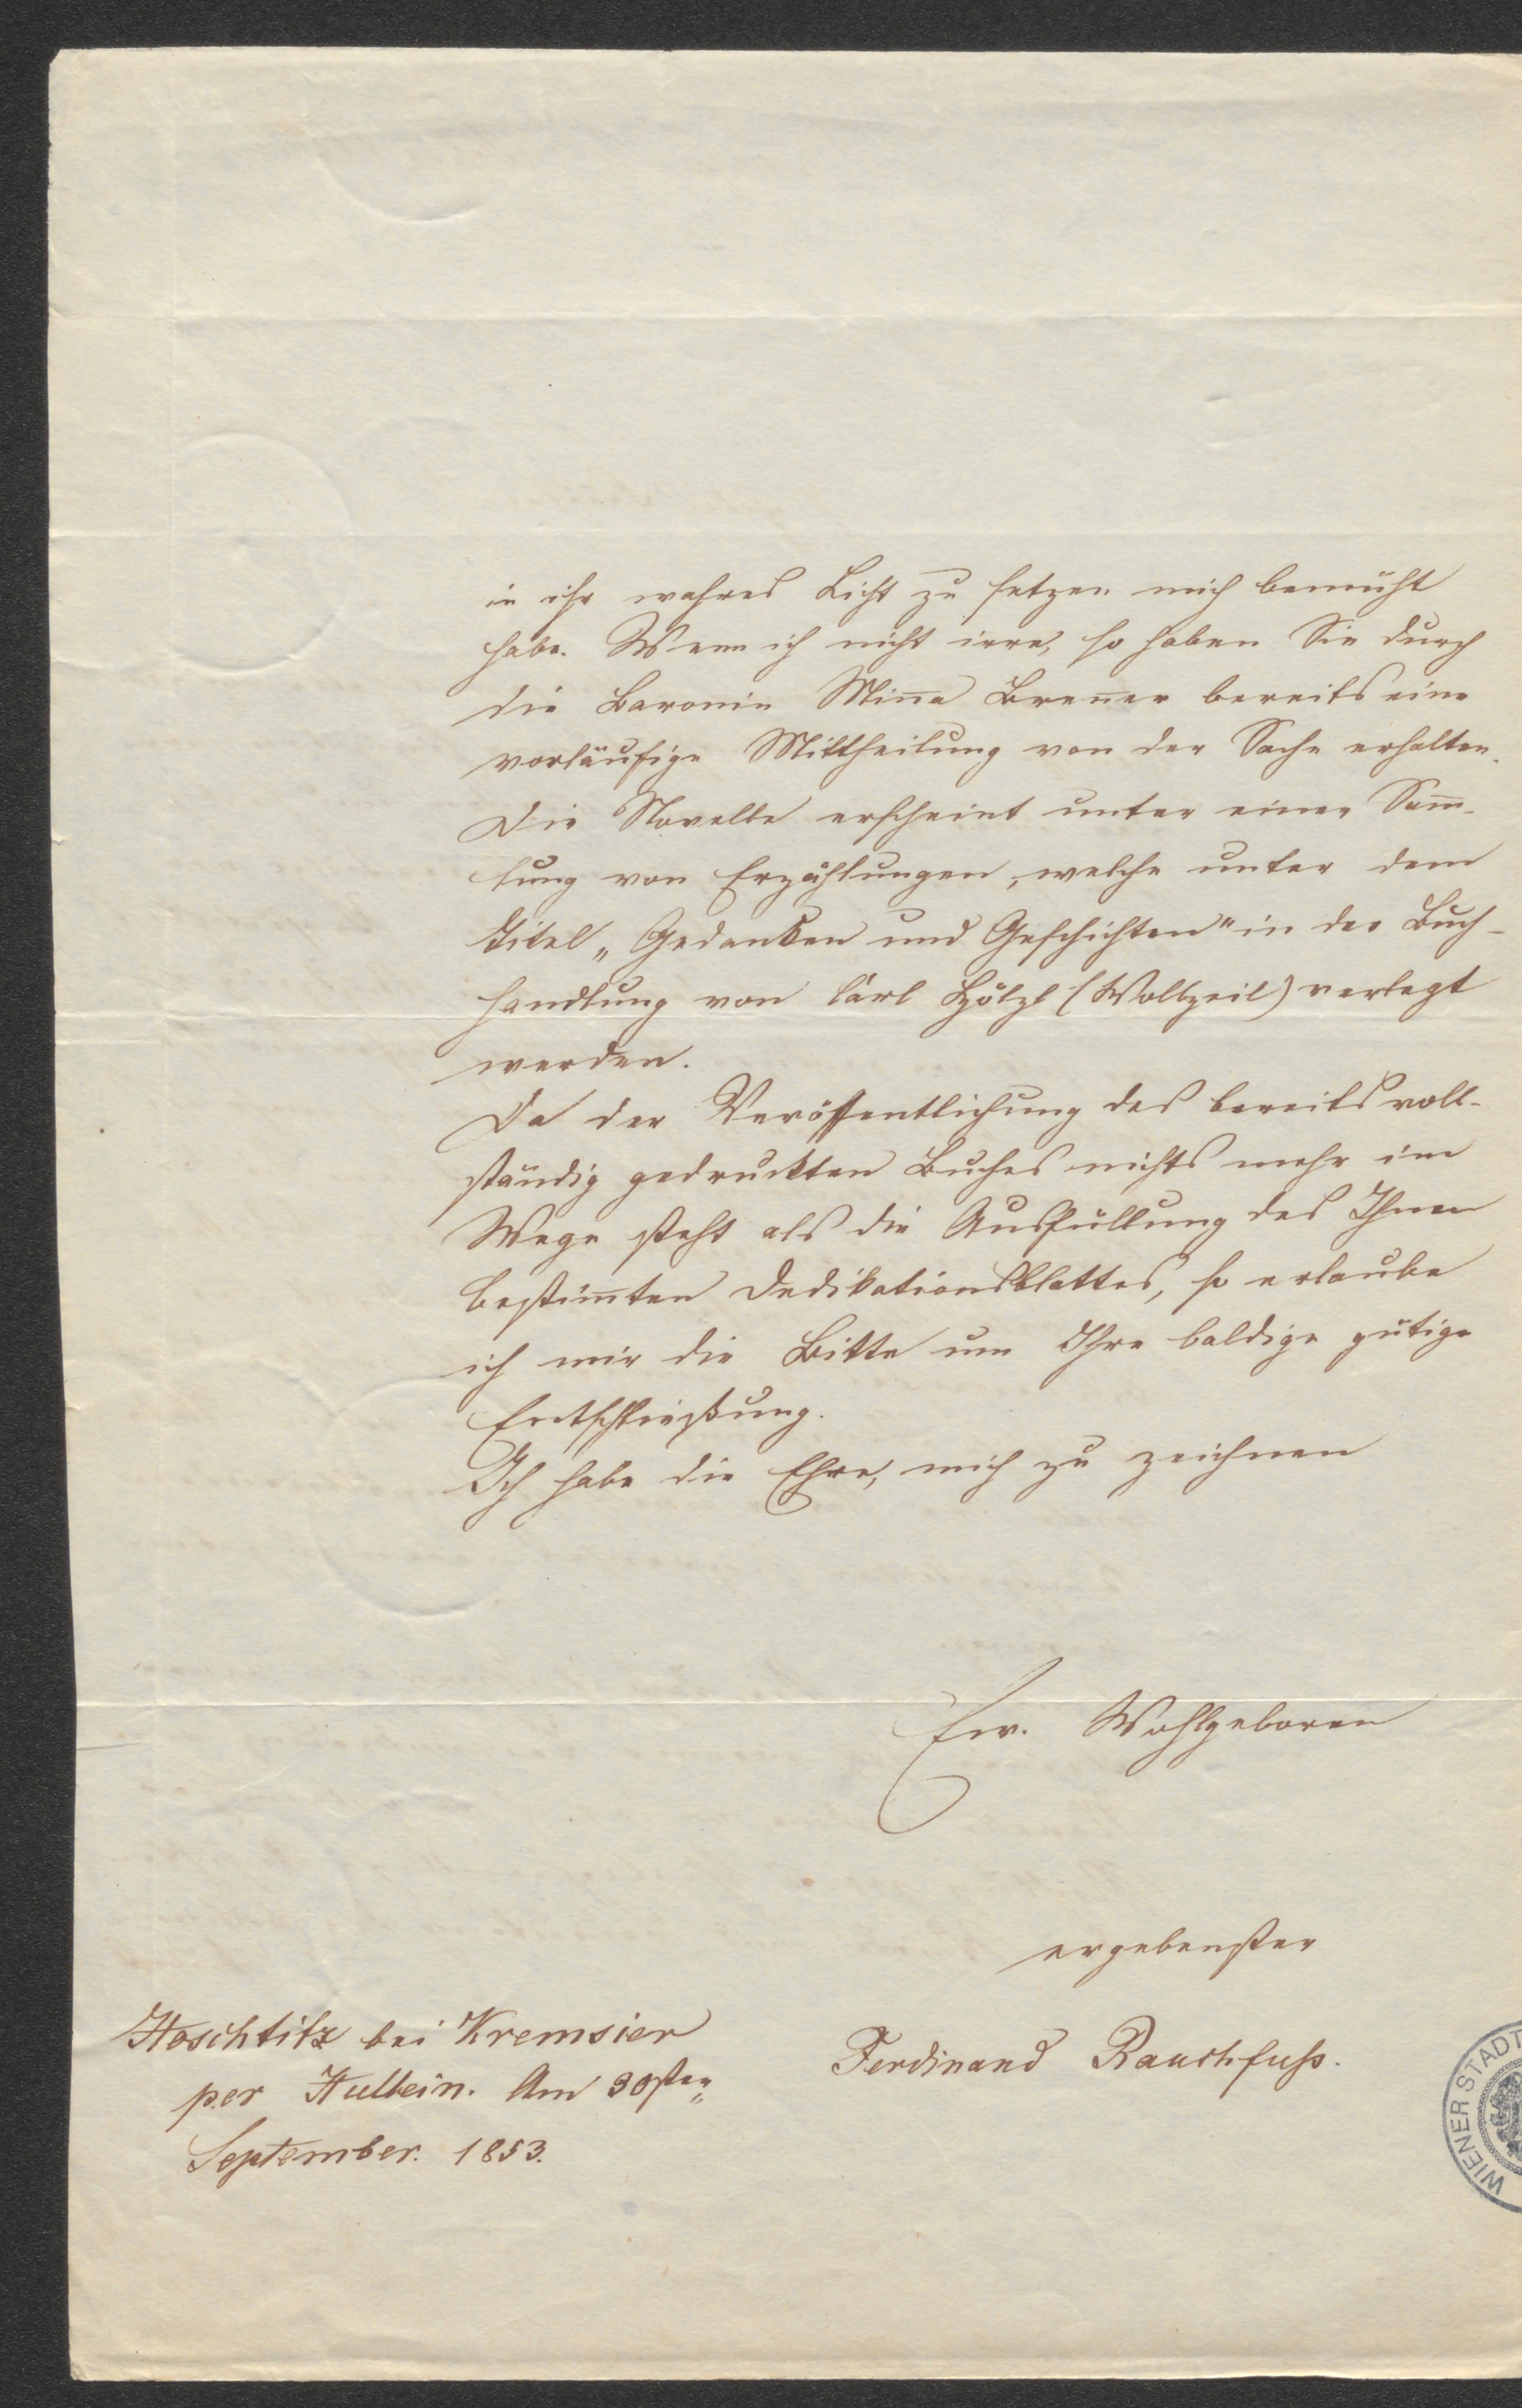 in ihr wahres Licht zu setzen mich bemüht
habe. Wenn ich nicht irre, so haben Sie durch
die Baronin Mina Brener bereits eine
vorläufige Mittheilung von der Sache erhalten.
Die Novelle erscheint unter einer Sam̅-
lung von Erzählungen, welche unter dem
Titel „Gedanken und Geschichten" in der Buch-
handlung von Carl Hölzl (Wollzeil) verlegt
werden.
Da der Veröffentlichung des bereits voll-
ständig gedruckten Buches nichts mehr im
Wege steht als die Ausfüllung des Ihnen
bestim̅ten Dedikationsblattes, so erlaube
ich mir die Bitte um Ihre baldige gütige
Entschließung.
Ich habe die Ehre, mich zu zeichnen
Ew. Wohlgeboren
ergebenster
Ferdinand Rauchfuß.
Hoschtitz bei Kremsier
per Hullein. Am 30sten
September. 1853.
WIENER STADT